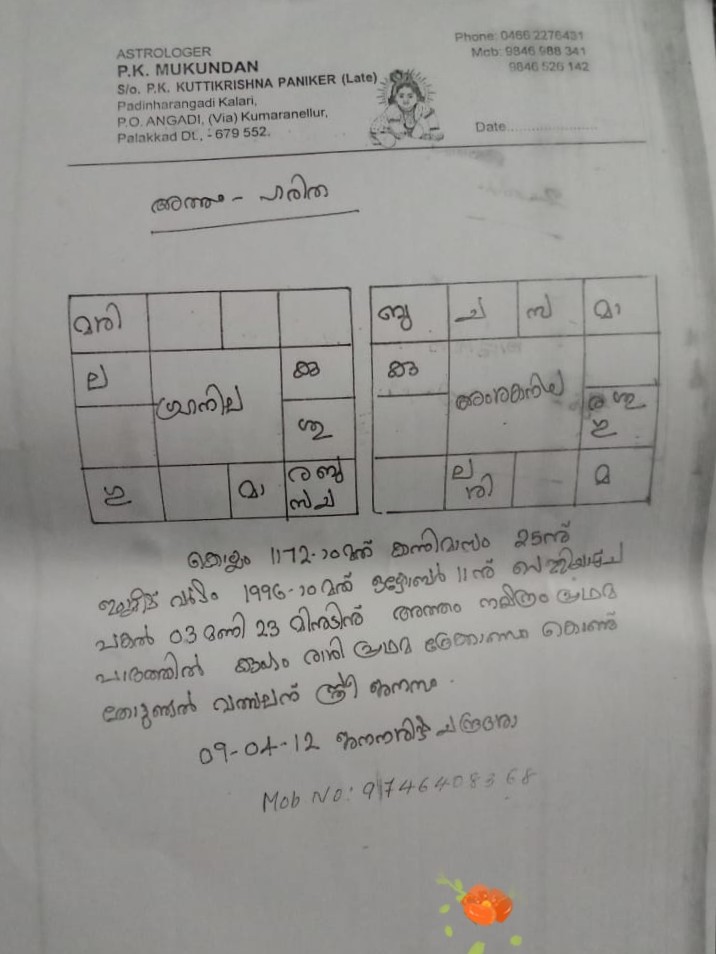 ASTROLOGER
P.K. MUKUNDAN
S/o. P.K. KUTTIKRISHNA PANIKER (Late)
Padinharangadi Kalari,
P.O. ANGADI, (Via) Kumaranellur,
Palakkad Dt., - 679 552.
Phone: 0466 2276431
Mob: 9846 988 341
9846 526 142
Date
അത്തം - ഹരിത
മശി
ല
കു
ഗ്രഹനില
ശു
ഗു
മാ
ര ബു
സ ച
ബു ച സ മാ
കു
അംശകനില
ര ശു
ഗു
ല
ശി
മ
കൊല്ലം 1172-ാമത് കന്നിമാസം 25ന്
ഇംഗ്ലീഷ് വർഷം 1996-ാമത് ഒക്ടോബർ 11ന് വെള്ളിയാഴ്ച
പകൽ 03 മണി 23 മിനുട്ടിന് അത്തം നക്ഷത്രം പ്രഥമ
പാദത്തിൽ കുംഭം രാശി പ്രഥമ ദ്രേക്കാണം കൊണ്ട്
വത്സലന് സ്ത്രീ ജനനം.
09-04-12 ജനനശിഷ്ട ചന്ദ്രദശാ
Mob No: 9746408368